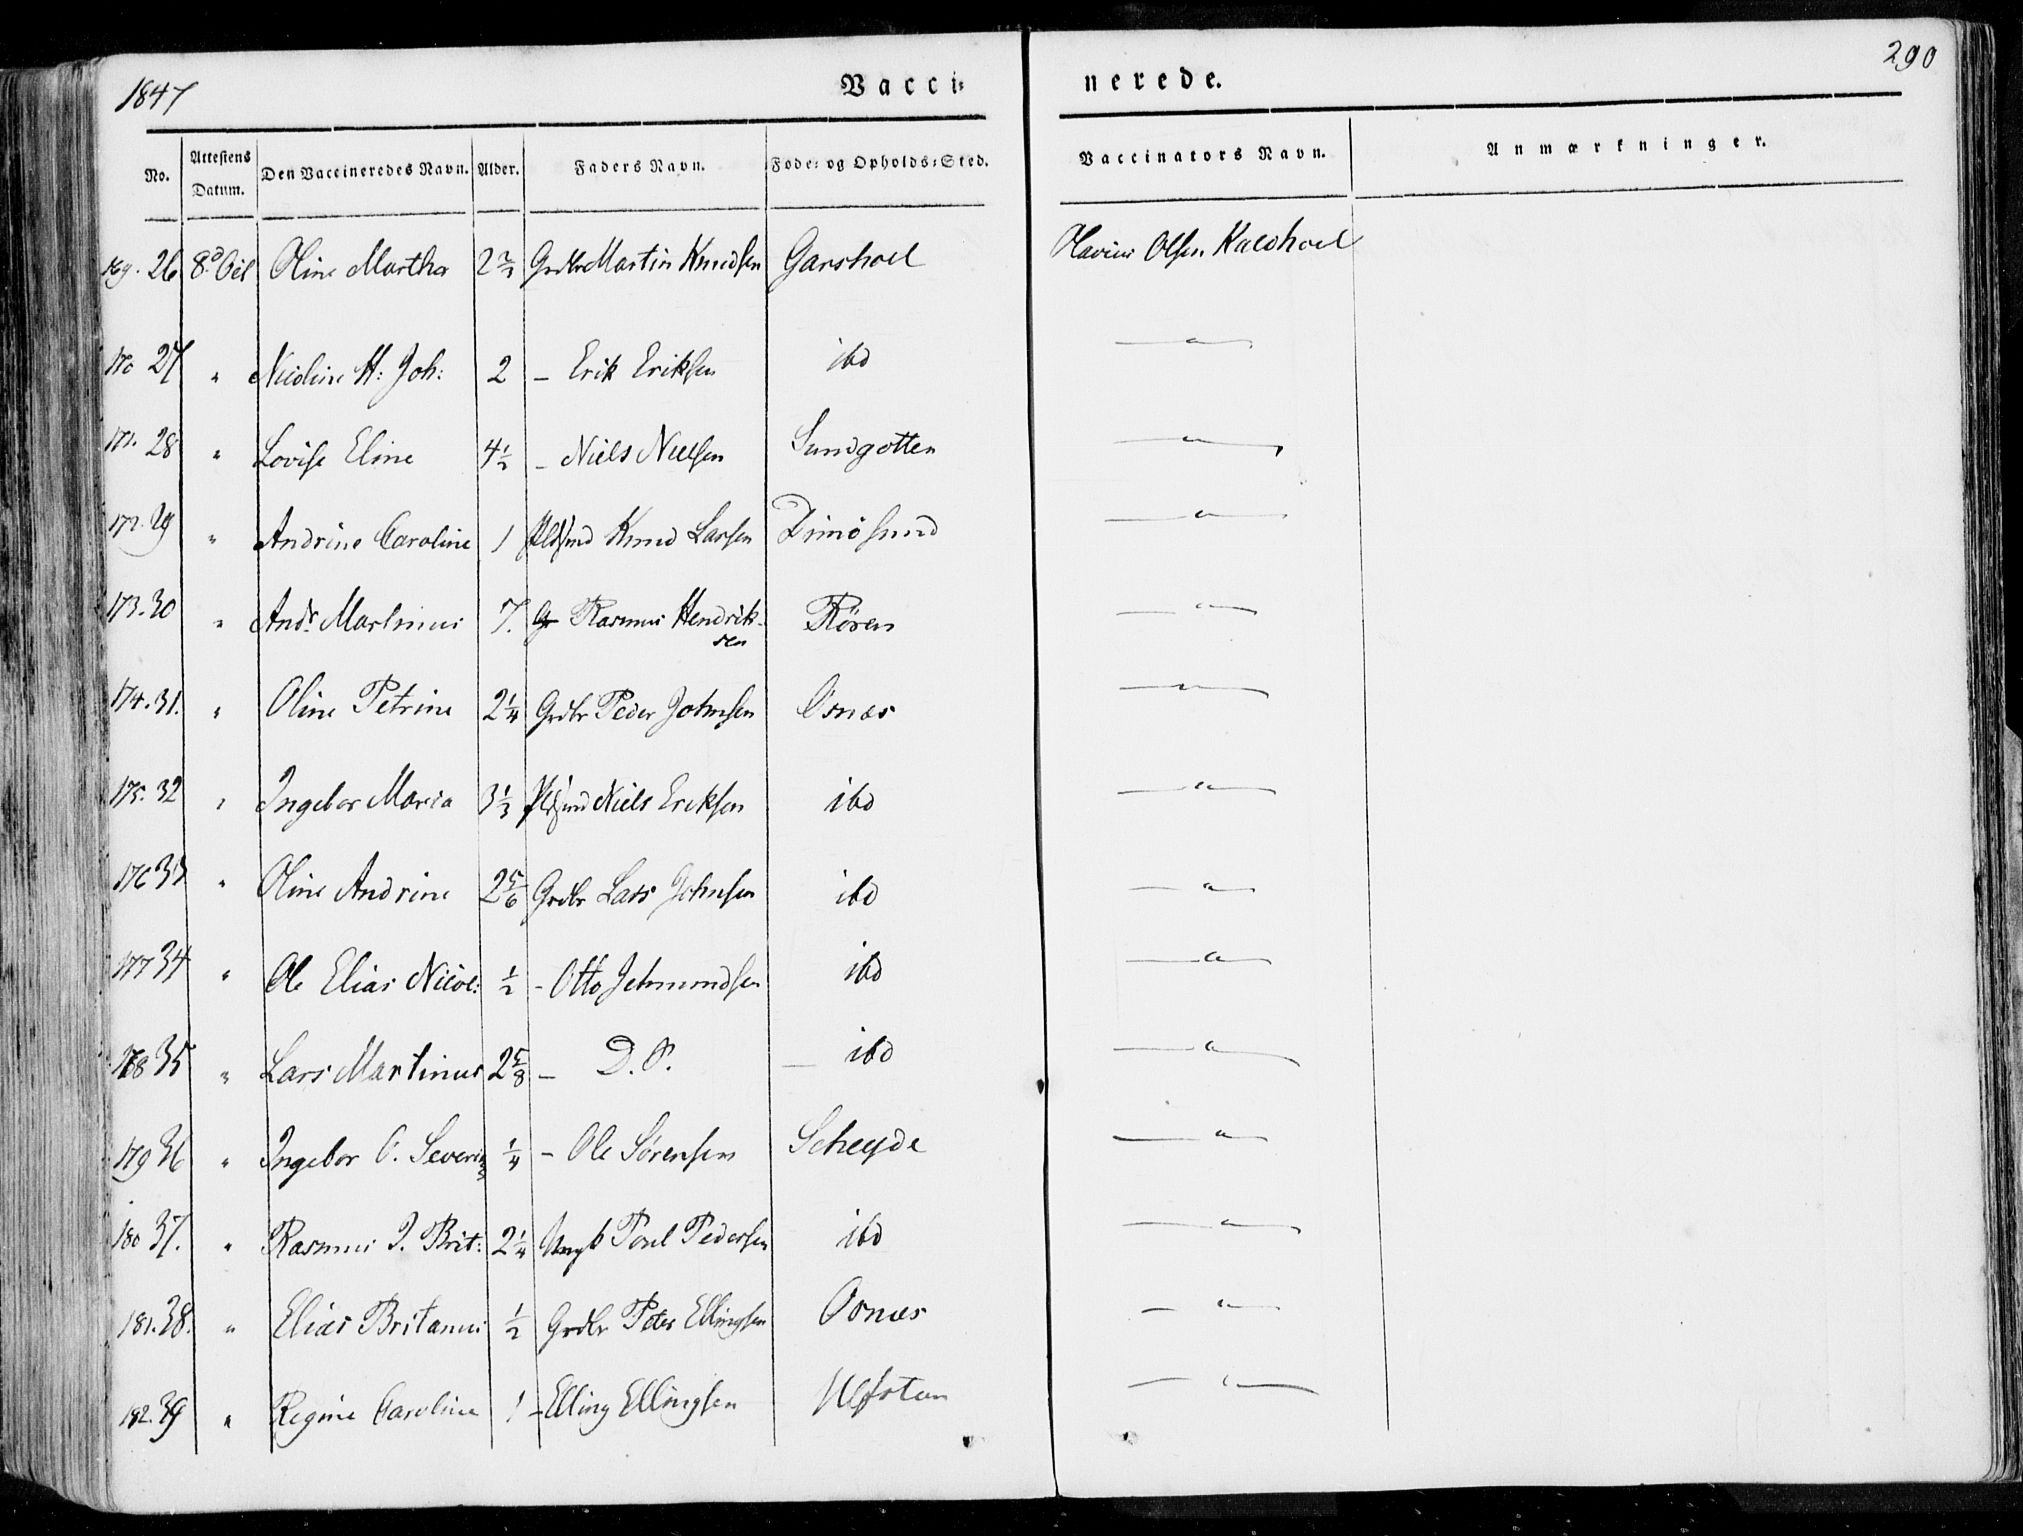 1847
Vacci- nerede.
290
No. Attestens Datum. Den Vaccineredes Navn. Alder. Faders Navn. Føde- og Opholds-Sted. Vaccinators Navn. Anmærkninger.
169. 26 8d Oct Oline Martha 2 2/3 Grdbr Martin Knudsen Garshoel Olavius Olsen Kaldhoel
170 27 " Nicoline H: Joh: 2 – Erik Eriksen ibd —"—
171. 28 " Lovise Eline 4 1/2 – Niels Nielsen Sundgotten —"—
172. 29 " Andrine Caroline 1 Pldsmd Knud Larsen Dimøsund —"—
173. 30 " Andr. Martinus 7. Gr Rasmus Hendrik-
sen Røren —"—
174. 31. " Oline Petrine 2 1/4 Grdbr Peder Johnsen Osnæs —"—
175. 32 " Ingebor Maria 3 1/3 Pldsmd Niels Eriksen ibd —"—
176 33 " Oline Andrine 2 5/6 Grdbr Lars Johnsen ibd —"—
177 34 " Ole Elias Nicol: 1/2 – Otto Jetmundsen ibd —"—
178 35 " Lars Martinus 2 5/8 – D. S. — ibd —"—
179 36 " Ingebor O. Severine 1/4 – Ole Sørensen Scheyde —"—
180 37. " Rasmus J. Brit: 2 1/4 Ungk Poul Pedersen ibd —"—
181. 38. " Elias Britanus 1/2 Grdbr Peter Ellingsen Osnæs —"—
182. 39 " Regine Caroline 1 – Elling Ellingsen Ulfsten —"—